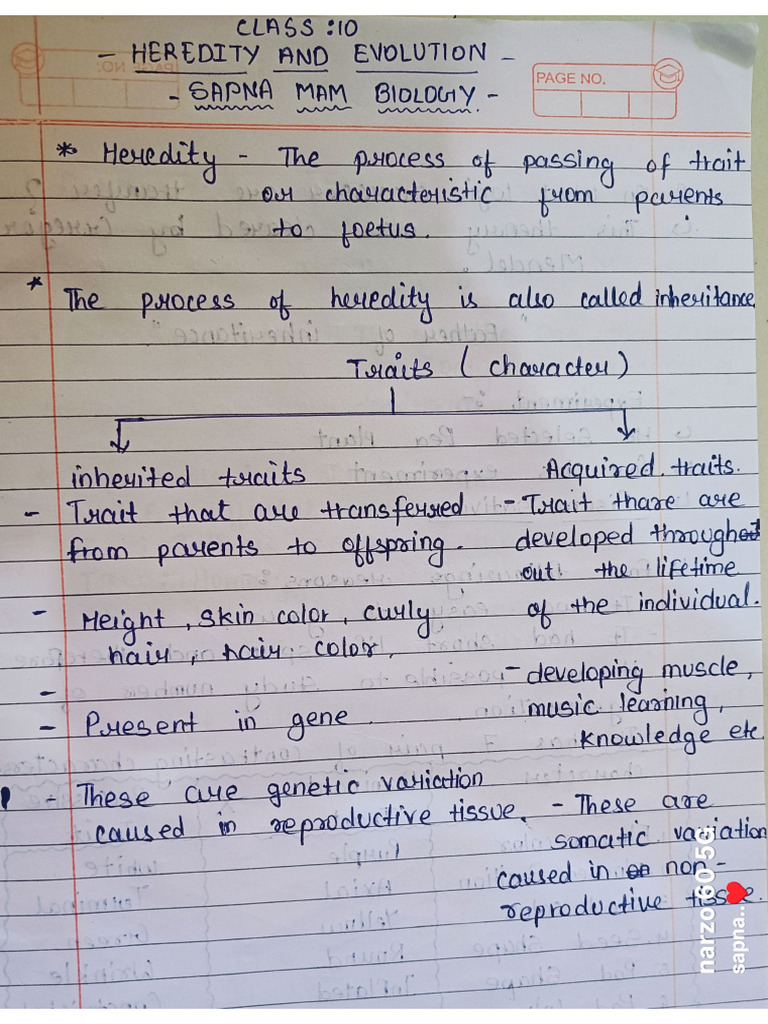 CLASS :10
- HEREDITY AND EVOLUTION -
- SAPNA MAM BIOLOGY. -
PAGE NO.
* Heredity - The process of passing of trait
or characteristic from parents
to foetus.
* The process of heredity is also called inheritance
Traits ( character )
inherited traits
- Trait that are transferred
from parents to offspring.
- Height, skin color, curly
hair, hair color,
-
- Present in gene.
- These are genetic variation
caused in reproductive tissue.
Acquired traits.
- Trait thare are
developed through
out the lifetime
of the individual.
- developing muscle,
music learning,
knowledge etc
- These are
somatic variation
caused in non-
reproductive tissue.
narzo 60 5G
sapna...